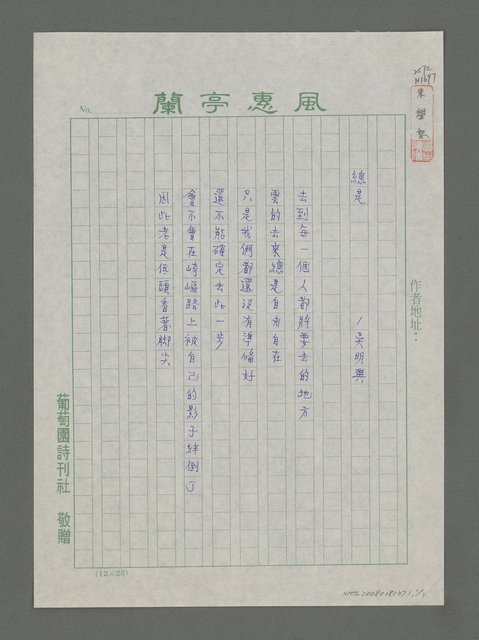 風惠亭蘭
No.
2572
N1697
作者地址：
總是
/吳明興
去到每一個人都將要去的地方
雲的去來總是自由自在
只是我們都還沒有準備好
還不能確定去此一步
會不會在崎嶇路上被自己的影子絆倒了
因此老是低頭看著腳尖
葡萄園詩刊社 敬贈
(12×25)